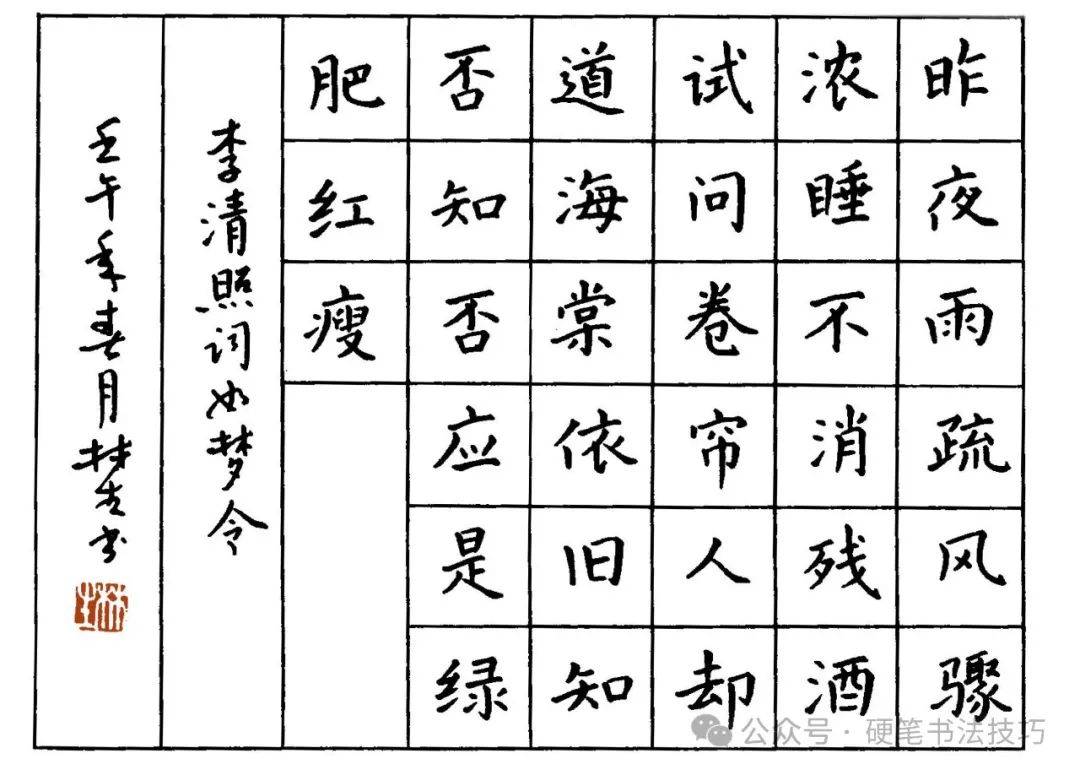 昨夜雨疏风骤
浓睡不消残酒
试问卷帘人却
道海棠依旧知
否知否应是绿
肥红瘦
李清照词如梦令
壬午年春月书
公众号·硬笔书法技巧